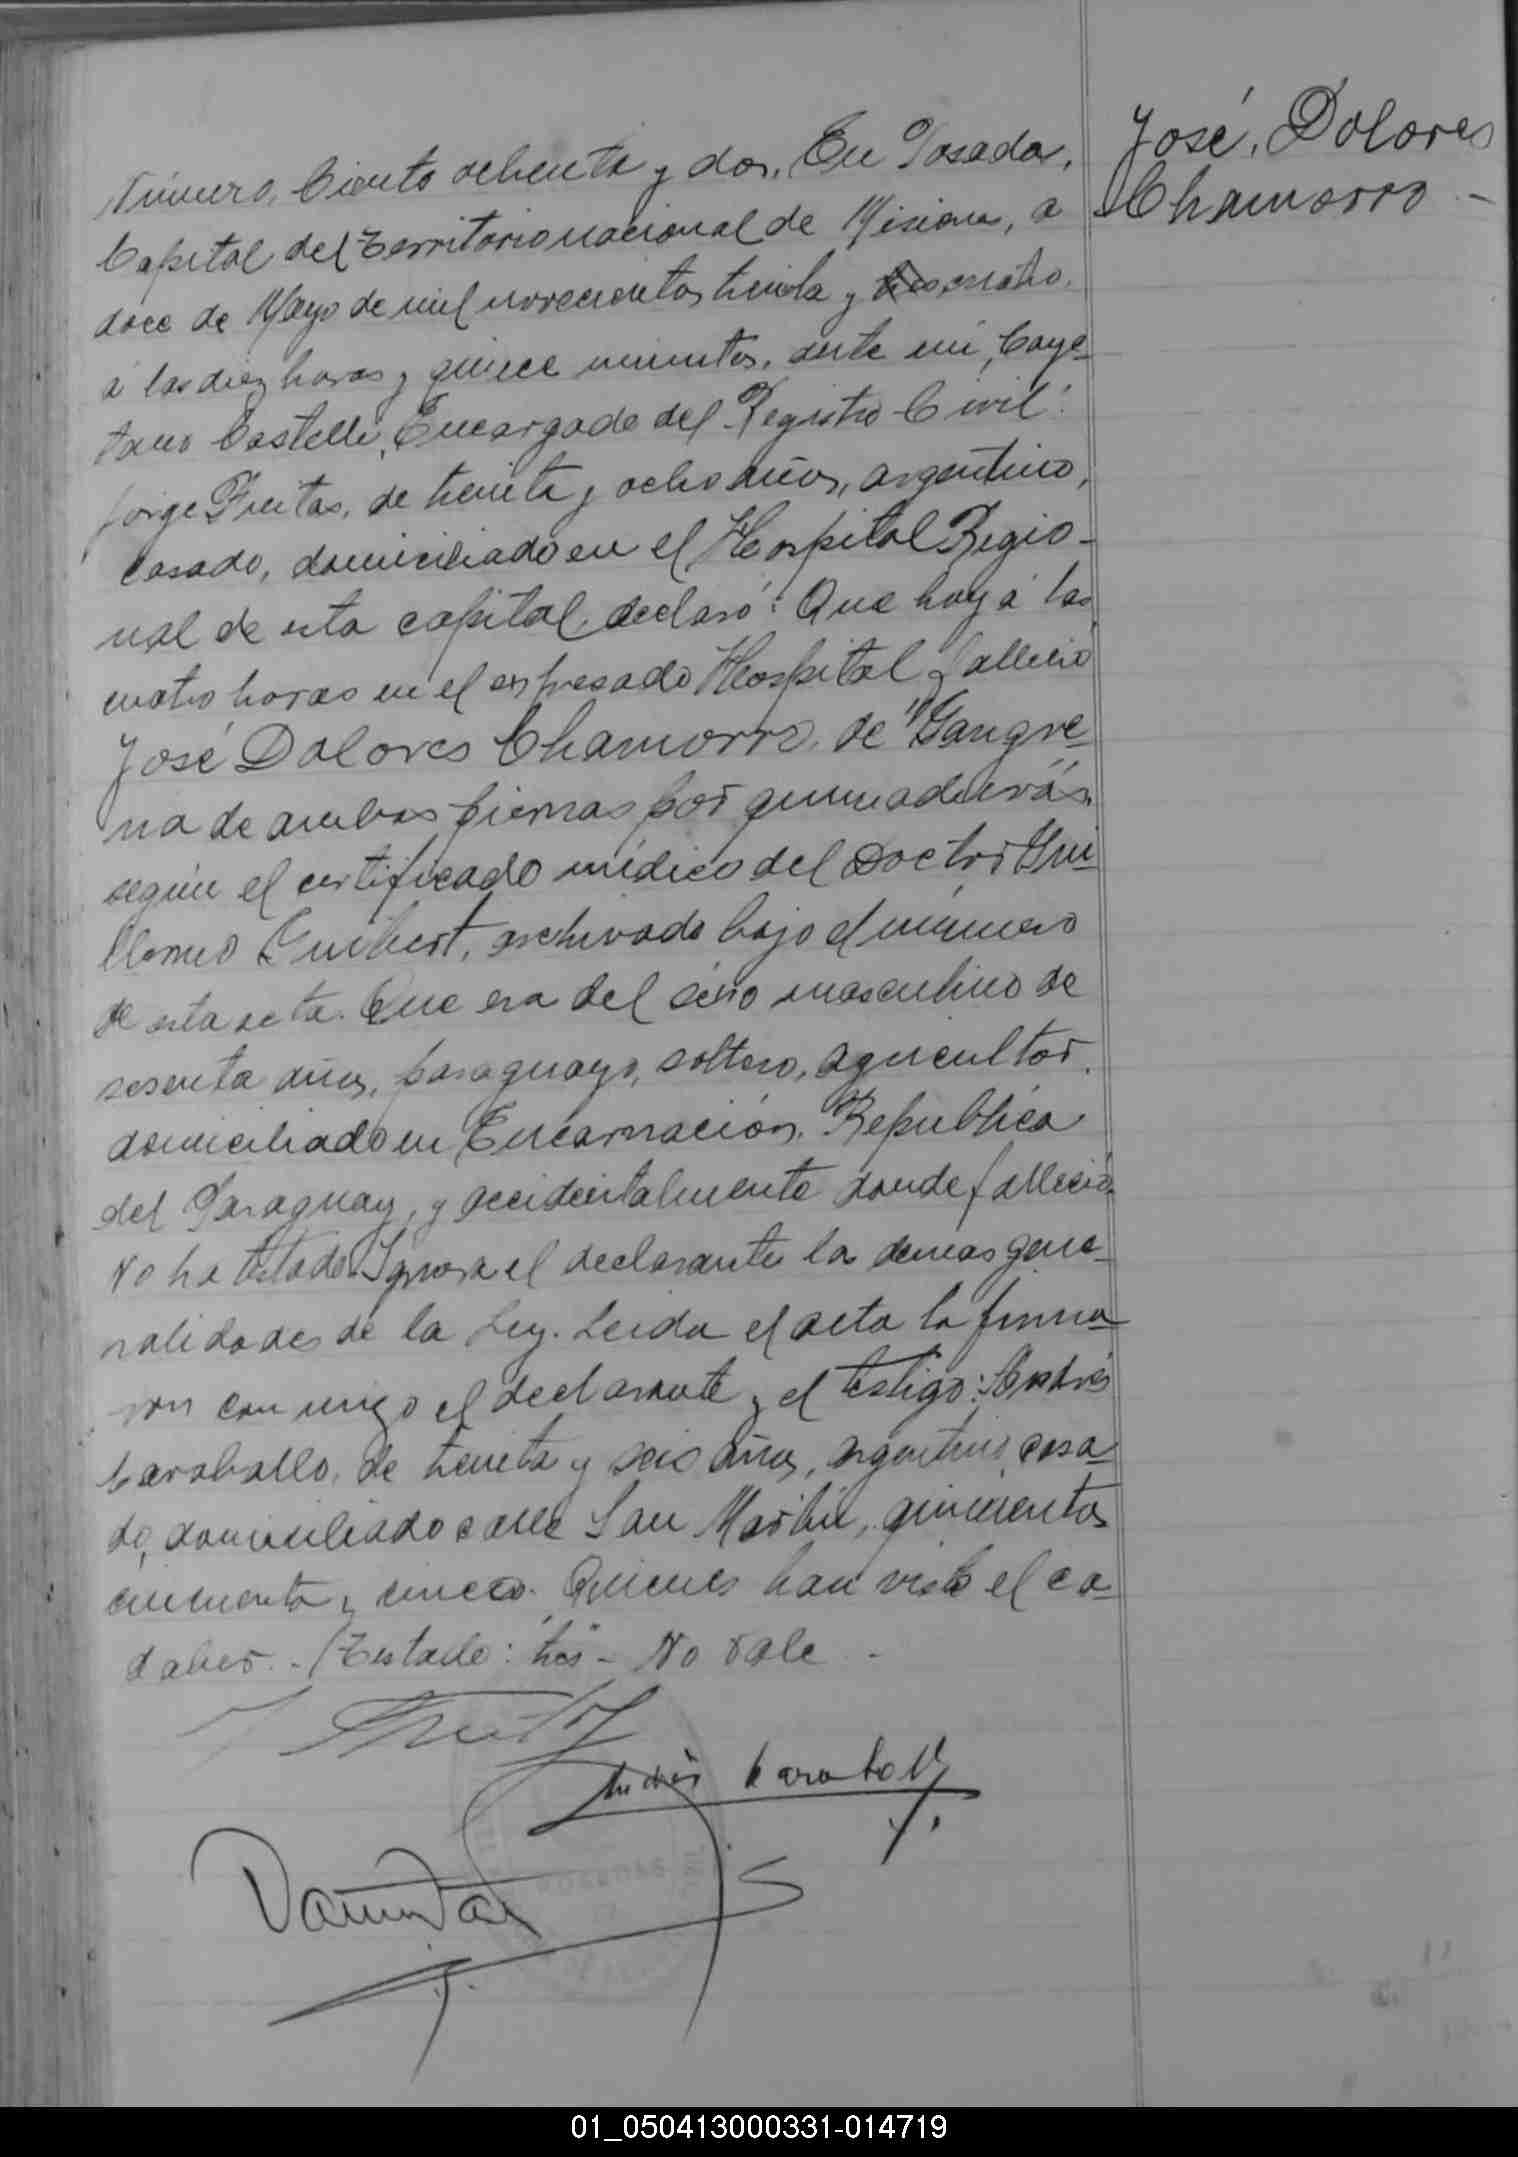 José Dolores
Chamorro -
Número Ciento ochenta y dos. En Posadas,
Capital del Territorio nacional de Misiones, a
doce de Mayo de mil novecientos treinta y tres cuatro,
á las diez horas y quince minutos, ante mi, Caye-
tano Castelli, Encargado del Registro Civil:
Jorge Freitas, de treinta y ocho años, argentino,
casado, domiciliado en el Hospital Regio-
nal de esta capital, declaró: Que hoy á las
cuatro horas en el expresado Hospital falleció
José Dolores Chamorro, de "Gangre-
na de ambas piernas por quemaduras",
según el certificado médico del Doctor Gui-
llermo Guibert, archivado bajo el número
de esta acta. Que era del sexo masculino de
sesenta años, paraguayo, soltero, agricultor,
domiciliado en Encarnación, República
del Paraguay, y accidentalmente donde falleció.
No ha testado. Ignora el declarante las demas gene-
ralidades de la Ley. Leida el acta la firma-
ron conmigo el declarante y el testigo: Andrés
Caraballo, de treinta y seis años, argentino, casa-
do, domiciliado calle San Martin, quinientos
cincuenta y cinco. Quienes han visto el ca-
daber. - Testado: "tres" - No vale -
Andrés Caraballo
POSADAS
01_050413000331-014719